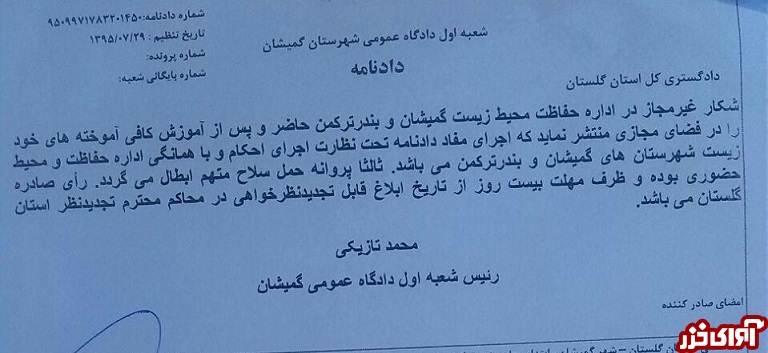 شماره دادنامه:۹۵۰۹۹۷۱۷۸۳۲۰۱۴۵۰
تاریخ تنظیم : ۱۳۹۵/۰۷/۲۹
شماره پرونده:
شماره بایگانی شعبه:
شعبه اول دادگاه عمومی شهرستان گمیشان
دادنامه
دادگستری کل استان گلستان
شکار غیرمجاز در اداره حفاظت محیط زیست گمیشان و بندرترکمن حاضر و پس از آموزش کافی آموخته های خود
را در فضای مجازی منتشر نماید که اجرای مفاد دادنامه تحت نظارت اجرای احکام و با همانگی اداره حفاظت و محیط
زیست شهرستان های گمیشان و بندرترکمن می باشد. ثالثا پروانه حمل سلاح متهم ابطال می گردد. رأی صادره
حضوری بوده و ظرف مهلت بیست روز از تاریخ ابلاغ قابل تجدیدنظرخواهی در محاکم محترم تجدیدنظر استان
گلستان می باشد.
محمد تازیکی
رئیس شعبه اول دادگاه عمومی گمیشان
امضای صادر کننده
آوای خزر
گلستان – شهر گمیشان